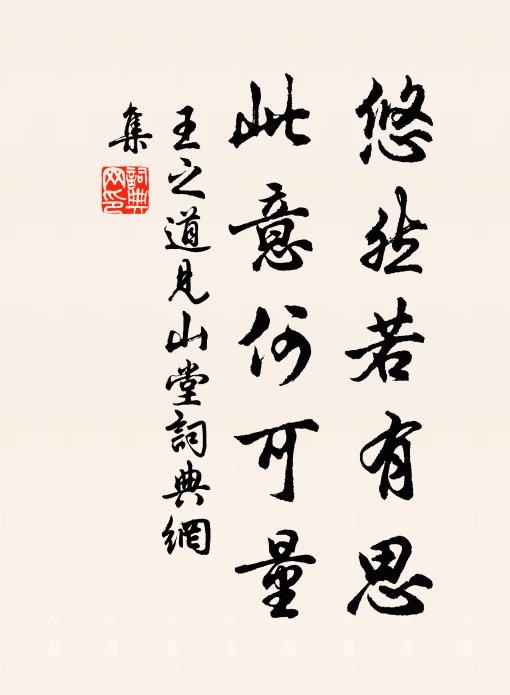 悠然若有思
此意何可量
王之道見山堂詞典網
集
詞典網印